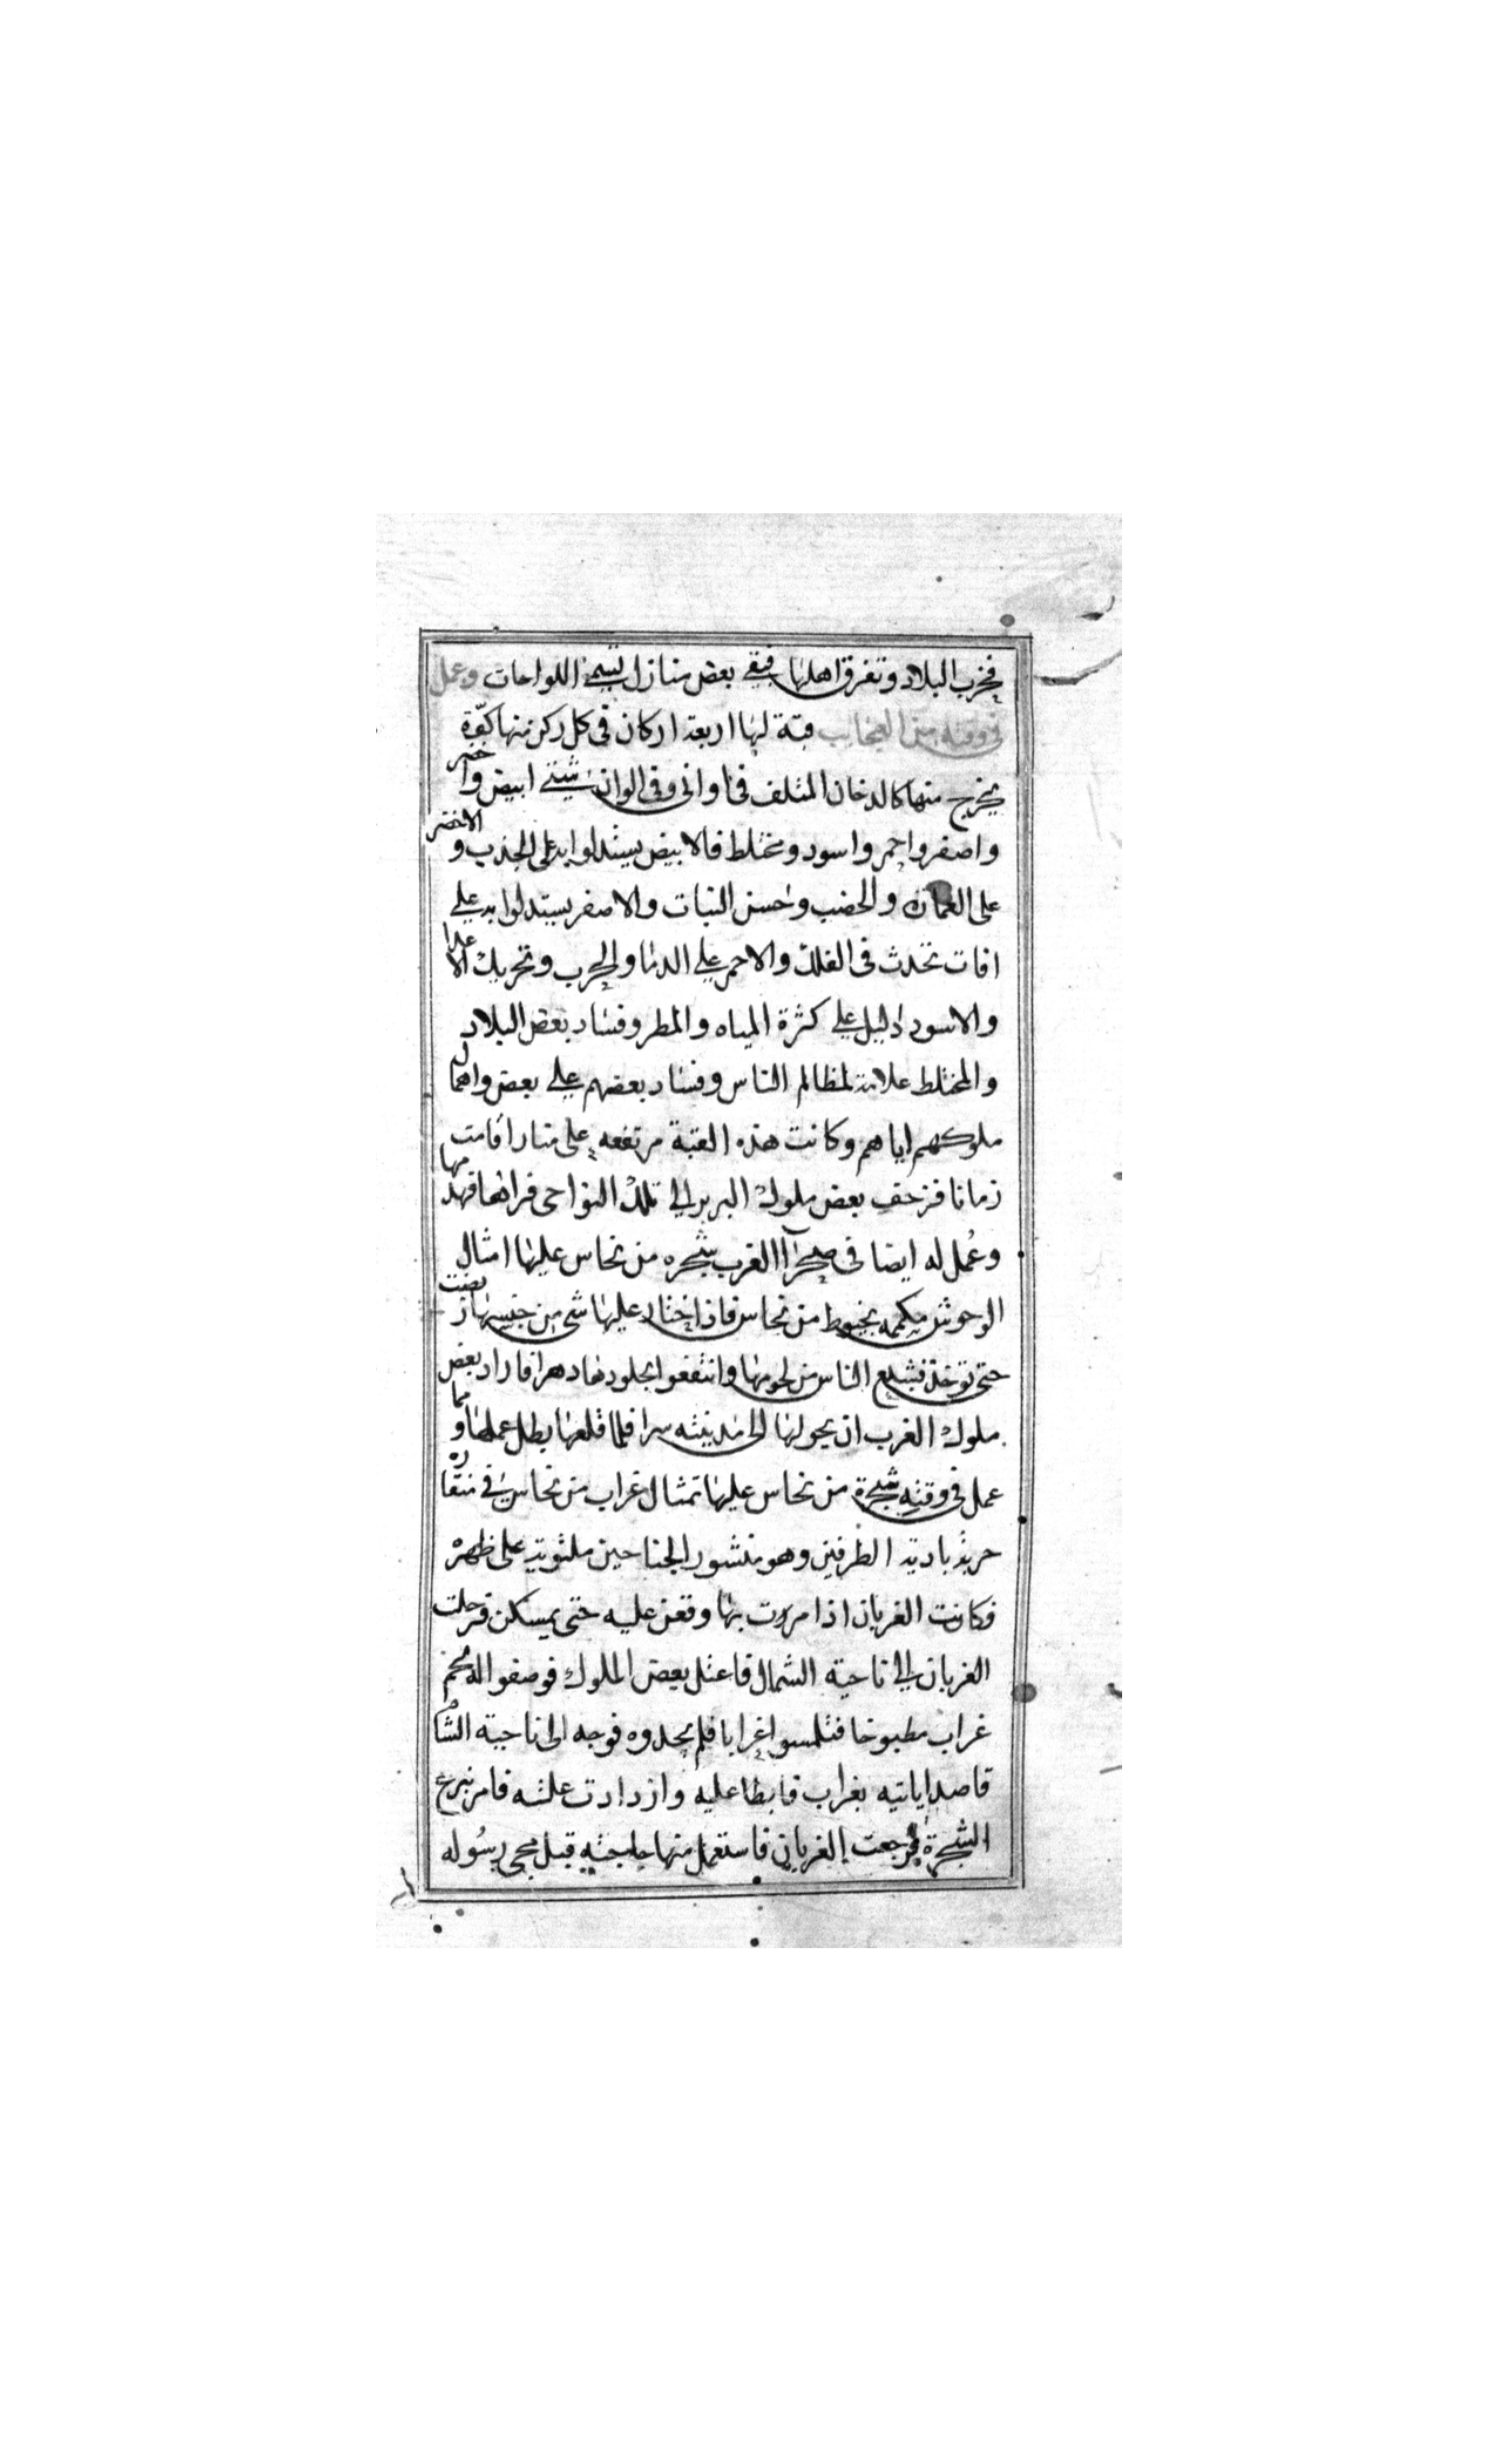 فخرب البلاد وتفرق اهلها فبقي بعض منازل تسمي اللواحات وعمل
في وقته من العجايب قبة لها اربعة اركان في كل ركن منها كوّة
يخرج منها كالدخان الملتف في اواني وفي الوان شتي ابيض واخضر
واصفر واحمر واسود ومختلط فالابيض يستدلوا به علي الجذب والاخضر
على العمارة والخصب وحسن النبات والاصفر يستدلوا به علي
افات تحدث في الفلك والاحمر علي الدما والحرب وتحريك الاعدا
والاسود دليل علي كثرة المياه والمطر وفساد بعض البلاد
والمختلط علامة لمظالم الناس وفساد بعضهم علي بعض واهمال
ملوكهم اياهم وكانت هذه القبة مرتفعه على منار اقامت
زمانا فزحف بعض ملوك البربر الي تلك النواحي فراها فهدمها
وعمل له ايضا في صحرآ الغرب شجره من نحاس عليها امثال
الوحوش مكممه بخيوط من نحاس فاذا اختار عليها شي من جنسها
حتي توخذ فشبع الناس من لحومها وانتفعوا بجلودها دهرا فاراد بعض
ملوك الغرب ان يحولها الي مدينته سرا فلما قلعها بطل عملها ومما
عمل في وقته شجرة من نحاس عليها تمثال غراب من نحاس في منقاره
حربة بادية الطرفين وهو منشور الجناحين ملتوية على ظهره
فكانت الغربان اذا مرت بها وقعن عليه حتى يمسكن فرحلت
الغربان الي ناحية الشمال فاعتل بعض الملوك فوصفوا له لحم
غراب مطبوخا فتلمسوا غرابا فلم يجدوه فوجه الى ناحية الشام
قاصدا ياتيه بغراب فابطا عليه وازدادت علته فامر بنزع
الشجرة فرجعت الغربان فاستعمل منها حاجته قبل مجي رسوله